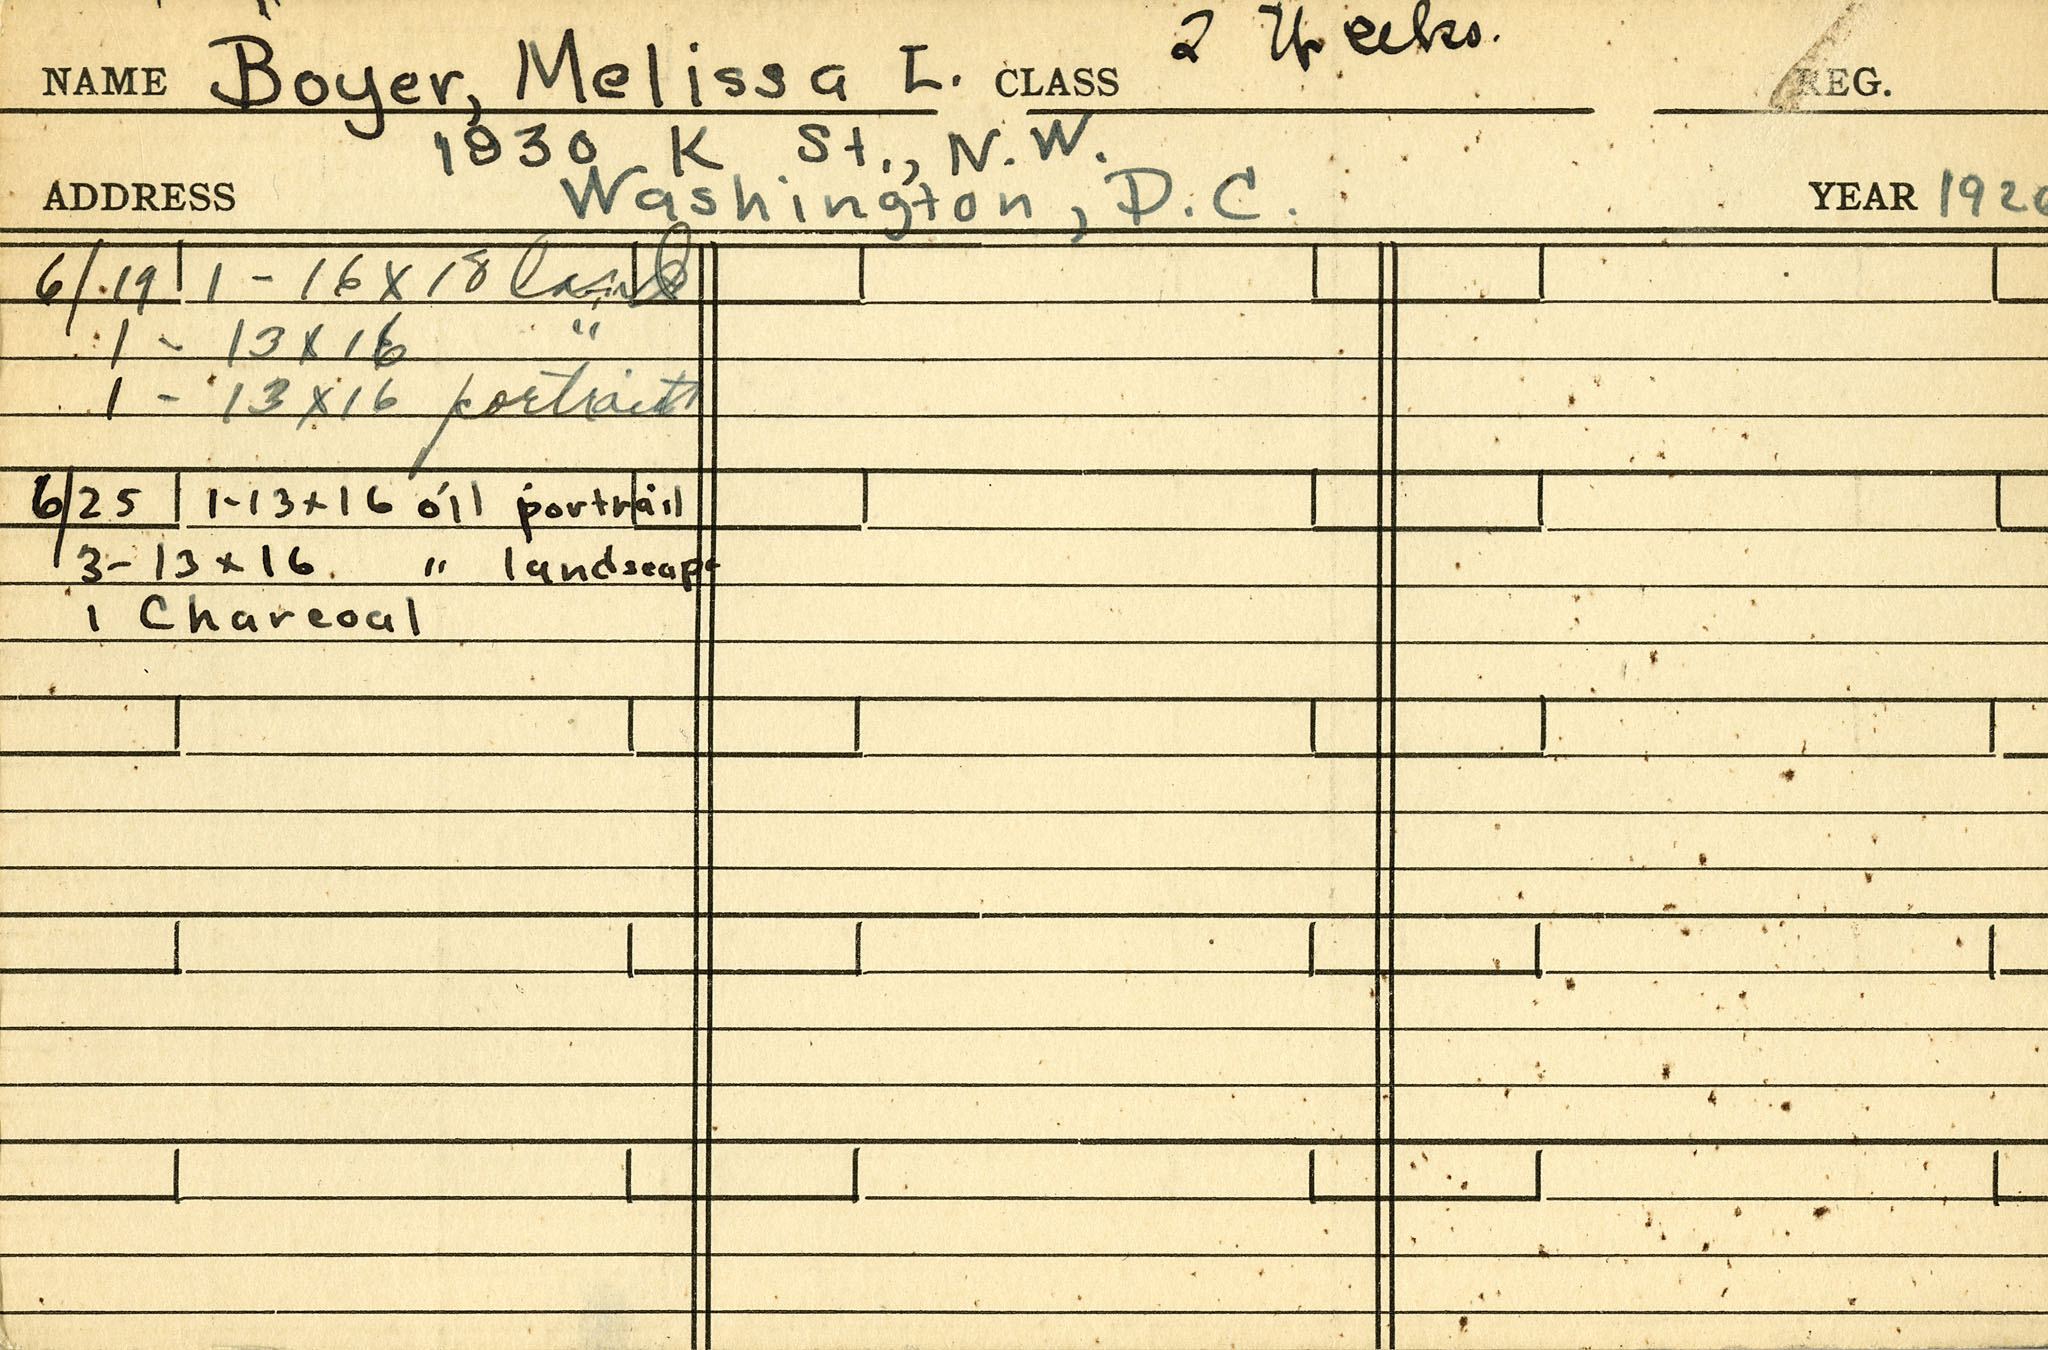 NAME Boyer, Melissa L. CLASS 2 Weeks. REG.
1930 K St., N.W.
ADDRESS Washington, D.C. YEAR 1926
6/19 1 - 16 x 18 land
1 - 13 x 16 "
1 - 13 x 16 portrait
6/25 1-13x16 oil portrait
3-13x16 " landscape
1 Charcoal